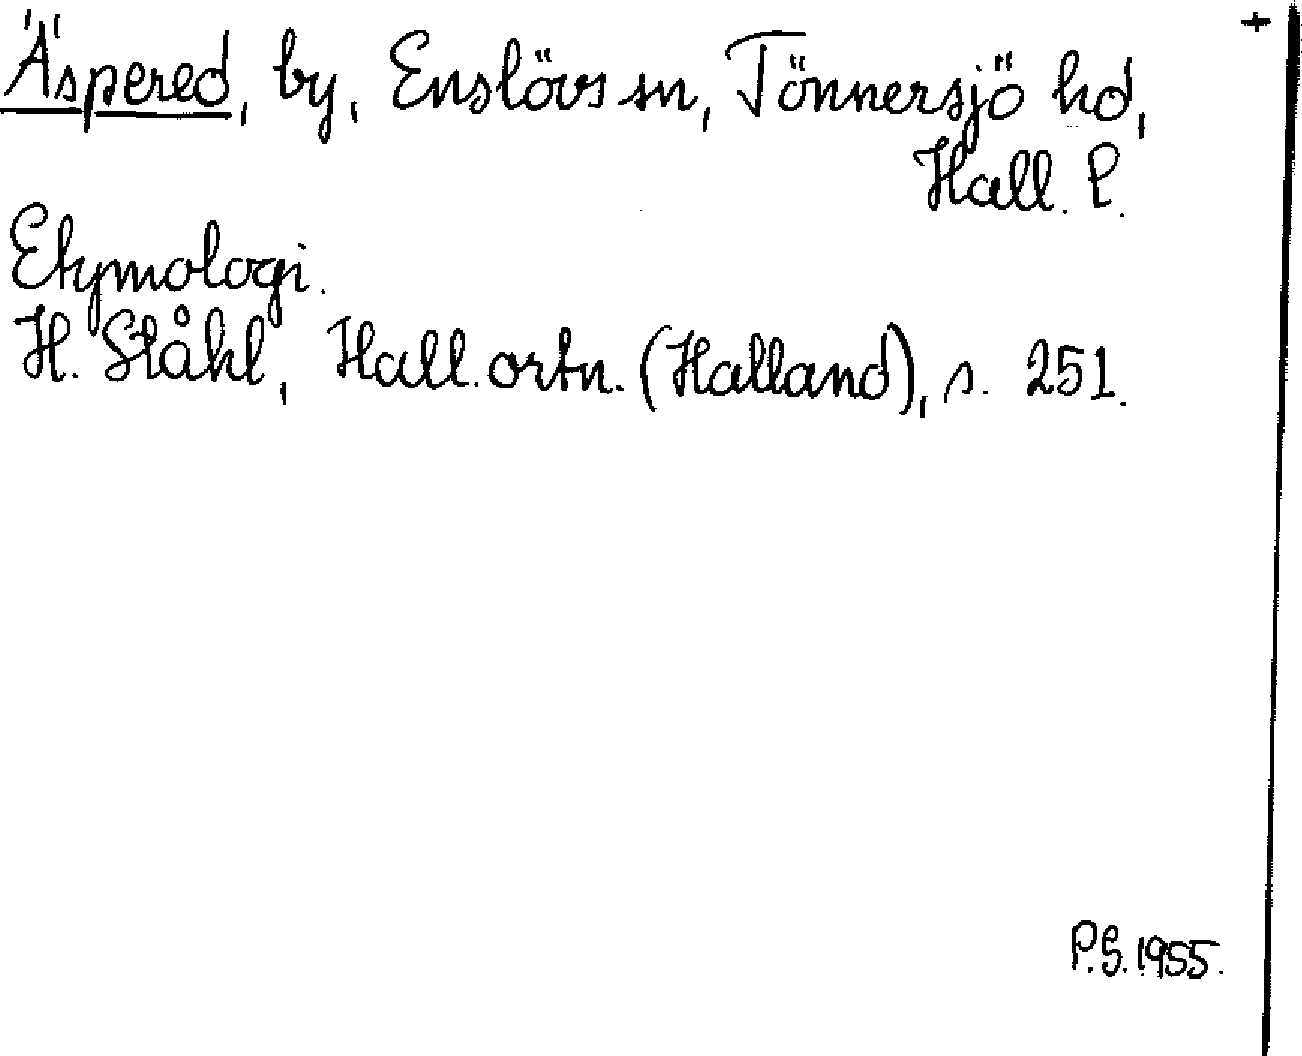 Äspered, by, Enslövs sn, Tönnersjö hd, +
Hall. l.
Etymologi.
H. Ståhl, Hall. ortn. (Halland), s. 251.
P.G. 1955.